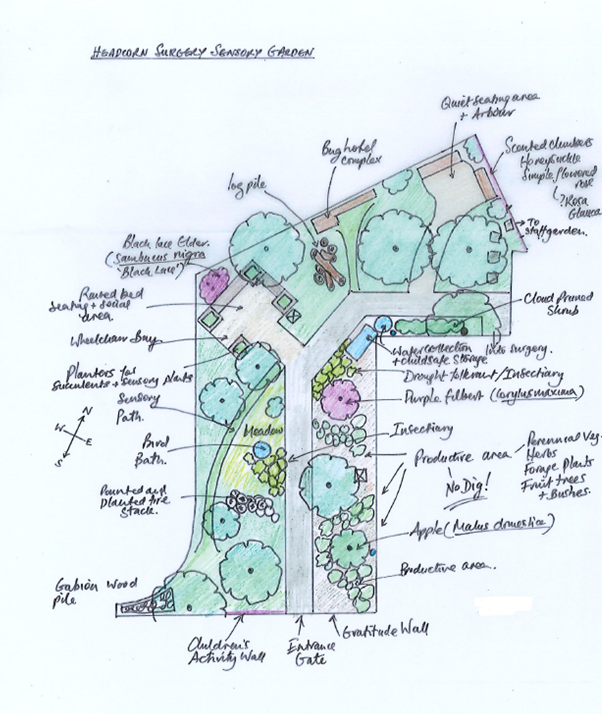 HEADCORN SURGERY SENSORY GARDEN
Quiet seating area
+ Arbour
Bug hotel
complex
Scented climbers
Honeysuckle
Simple flowered
rose
(?Rosa
Glauca
log pile
To
staff garden.
Black lace Elder.
(Sambucus nigra
'Black Lace')
Raised bed
seating + social
area
Cloud pruned
shrub
Wheelchair Bay
Water collection
+ childsafe storage
into surgery.
Planters for
succulents + sensory plants
Drought tolerant/Insectiary
Sensory
Path.
Purple filbert (Corylus maxima)
Meadow
Insectiary
Bird
Bath.
Productive area
Perennial Veg
Herbs
Forage Plants
Fruit trees
+ Bushes.
No Dig!
Painted and
Planted tire
Stack.
Apple (Malus domestica)
Productive area.
Gabion Wood
pile
Children's
Activity Wall
Entrance
Gate
Gratitude Wall
N
W
E
S